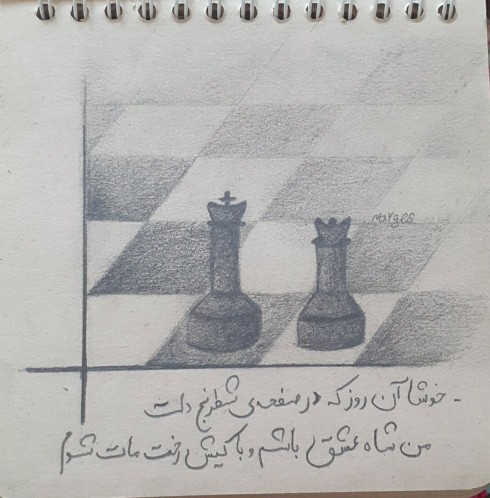 narges
- خوشا آن روز که در صفحه‌ی شطرنج دلت
من شاه عشق باشم و با کیش رخت مات شوم